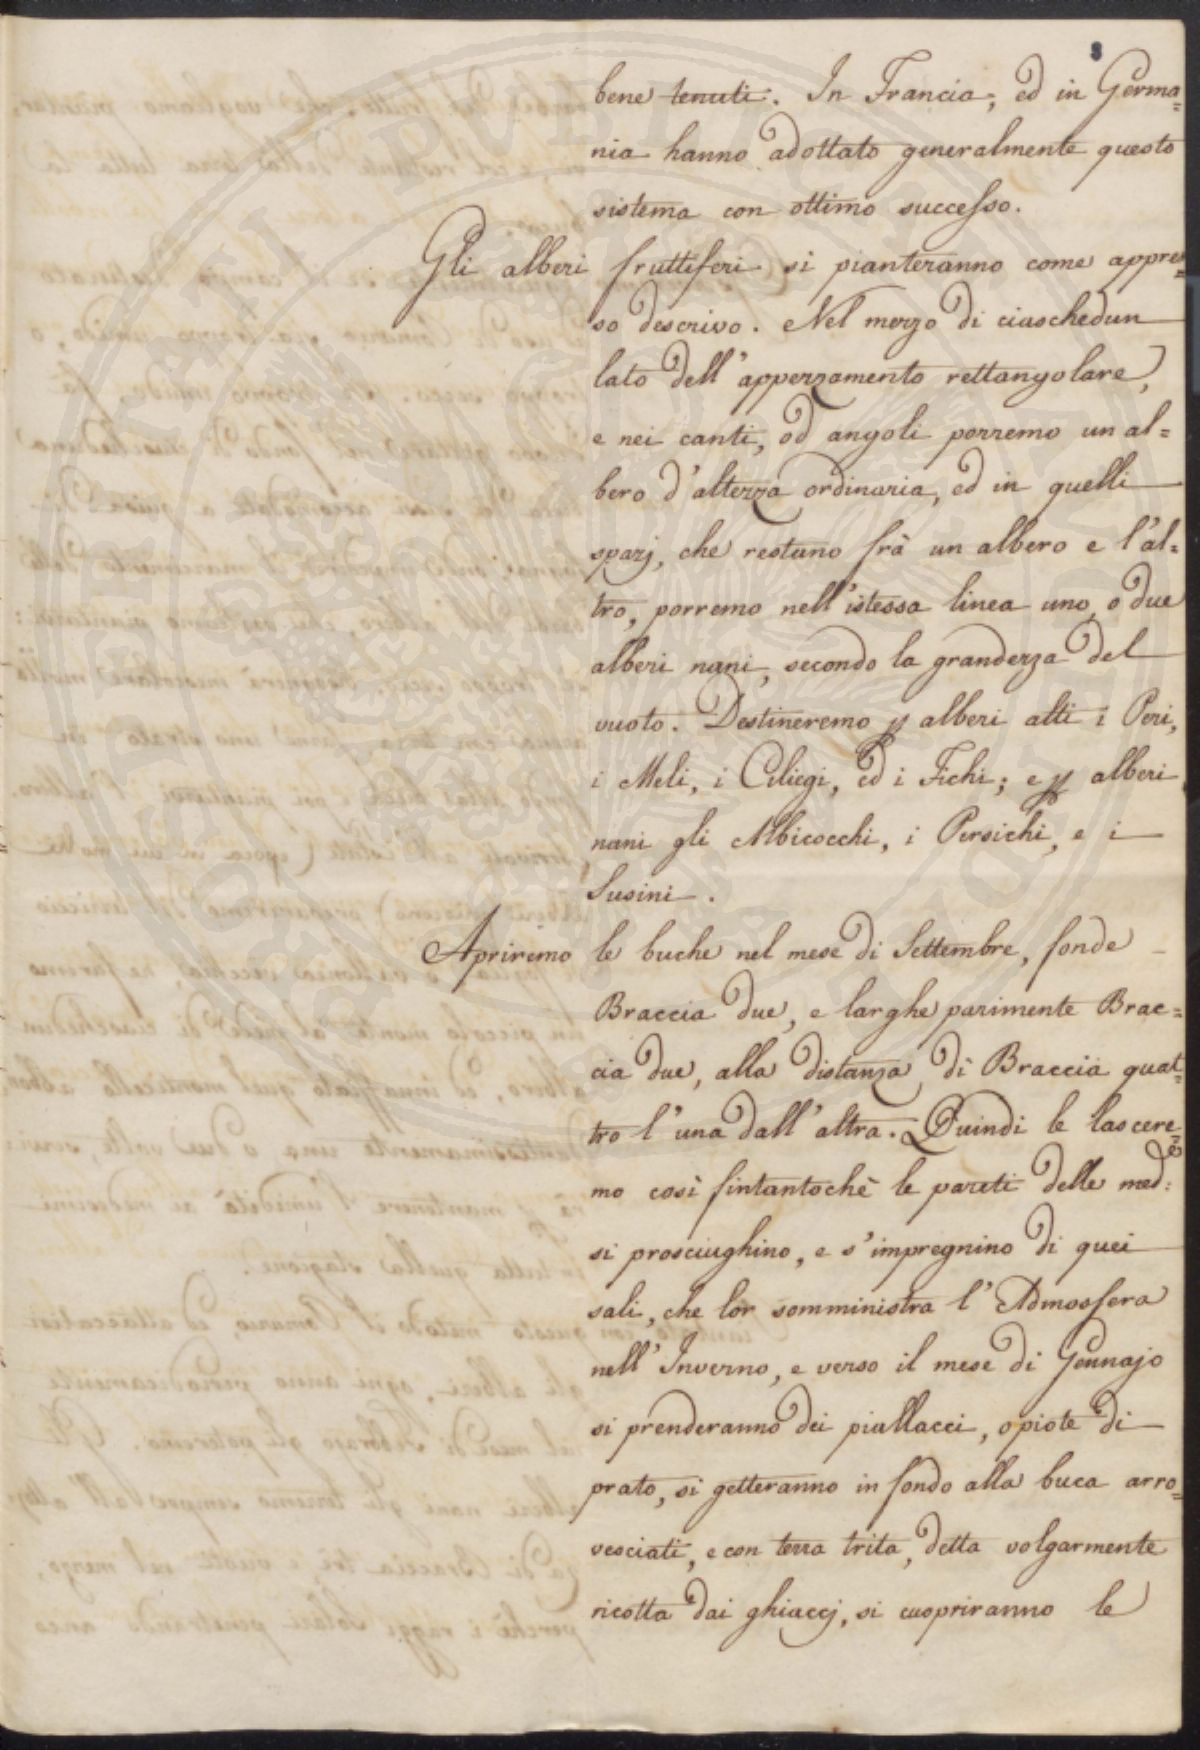 8
bene tenuti. In Francia, ed in Germa=
nia hanno adottato generalmente questo
sistema con ottimo successo.
Gli alberi fruttiferi si pianteranno come appres=
so descrivo. Nel mezzo di ciaschedun
lato dell'appezzamento rettangolare,
e nei canti, od angoli porremo un al=
bero d'altezza ordinaria, ed in quelli
spazj, che restano frà un albero e l'al=
tro, porremo nell'istessa linea uno, o due
alberi nani, secondo la grandezza del
vuoto. Destineremo p alberi alti i Peri,
i Meli, i Ciliegi, ed i Fichi; e p alberi
nani gli Albicocchi, i Persichi, e i
Susini.
Apriremo le buche nel mese di Settembre, fonde
Braccia due, e larghe parimente Brac=
cia due, alla distanza di Braccia quat=
tro l'una dall'altra. Quindi le lascere=
mo così fintantochè le pareti delle med:e
si prosciughino, e s'impregnino di quei
sali, che lor somministra l'Admosfera
nell'Inverno, e verso il mese di Gennajo
si prenderanno dei piallacci, o piote di
prato, si getteranno in fondo alla buca arro=
vesciati, e con terra trita, detta volgarmente
ricotta dai ghiaccj, si cuopriranno le